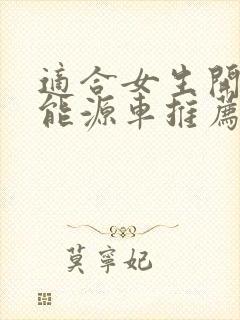 適合女生開
能源車推薦
莫寧妃